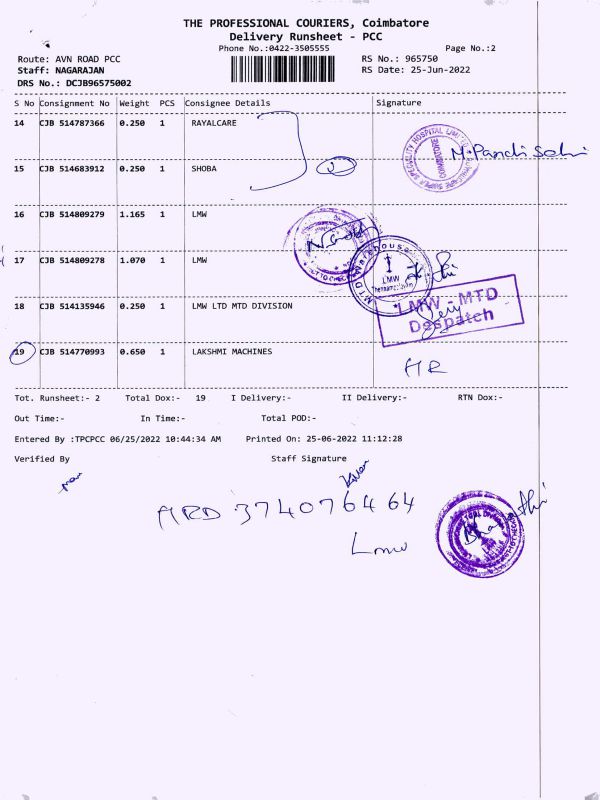 THE PROFESSIONAL COURIERS, Coimbatore
Delivery Runsheet - PCC
Phone No.:0422-3505555
Page No.:2
Route: AVN ROAD PCC
RS No.: 965750
Staff: NAGARAJAN
RS Date: 25-Jun-2022
DRS No.: DCJB96575002
S No Consignment No Weight PCS Consignee Details Signature
14 CJB 514787366 0.250 1 RAYALCARE
15 CJB 514683912 0.250 1 SHOBA
16 CJB 514809279 1.165 1 LMW
17 CJB 514809278 1.070 1 LMW
LMW
18 CJB 514135946 0.250 1 LMW LTD MTD DIVISION
LMW - MTD
Despatch
19 CJB 514770993 0.650 1 LAKSHMI MACHINES
HR
Tot. Runsheet:- 2 Total Dox:- 19 I Delivery:- II Delivery:- RTN Dox:-
Out Time:- In Time:- Total POD:-
Entered By :TPCPCC 06/25/2022 10:44:34 AM Printed On: 25-06-2022 11:12:28
Verified By Staff Signature
HRD 374076464
Lmw